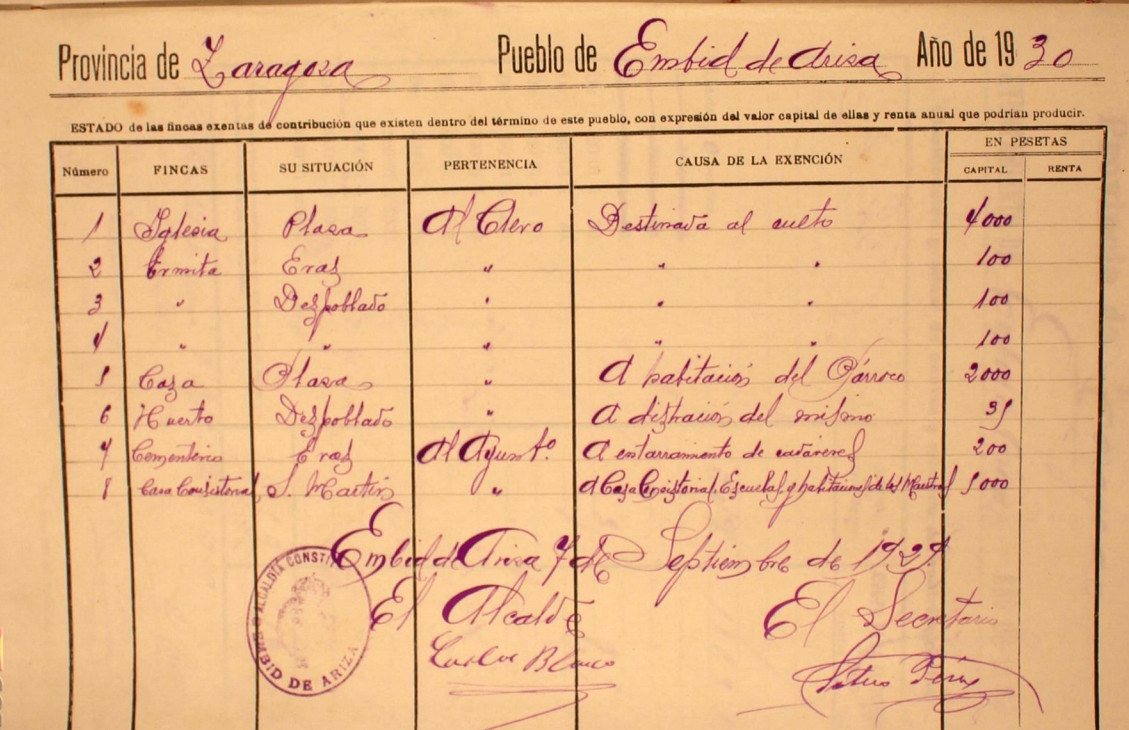 Provincia de Zaragoza Pueblo de Embid de Ariza Año de 1930
ESTADO de las fincas exentas de contribución que existen dentro del término de este pueblo, con expresión del valor capital de ellas y renta anual que podrían producir.
Número FINCAS SU SITUACIÓN PERTENENCIA CAUSA DE LA EXENCIÓN EN PESETAS
CAPITAL RENTA
1 Iglesia Plaza Al Clero Destinada al culto 4000
2 Ermita Eras " " " 100
3 " Despoblado " " " 100
4 " " " " " 100
5 Casa Plaza " A habitación del Párroco 2000
6 Huerto Despoblado " A distración del mismo 35
7 Cementerio Eras Al Ayuntº A entarramiento de cadáveres 200
8 Casa Consistorial S. Martín " A Casa Consistorial, Escuelas y habitaciones de los Maestros 5000
Embid de Ariza 7 de Septiembre de 1929
El Alcalde El Secretario
Carlos Blanco
ALCALDIA CONSTIT
EMBID DE ARIZA